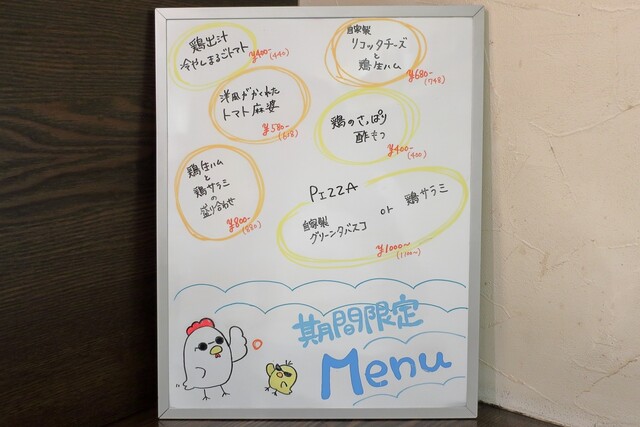 鶏出汁
冷やしまるごとトマト
¥400-
(440)
自家製
リコッタチーズ
と
鶏生ハム
¥680-
(748)
洋風がかくれた
トマト麻婆
¥580-
(638)
鶏のさっぱり
酢もつ
¥400-
(400)
鶏生ハム
と
鶏サラミ
の
盛り合わせ
¥800-
(880)
PIZZA
自家製
グリーンタバスコ
or 鶏サラミ
¥1000-
(1100-)
期間限定
Menu